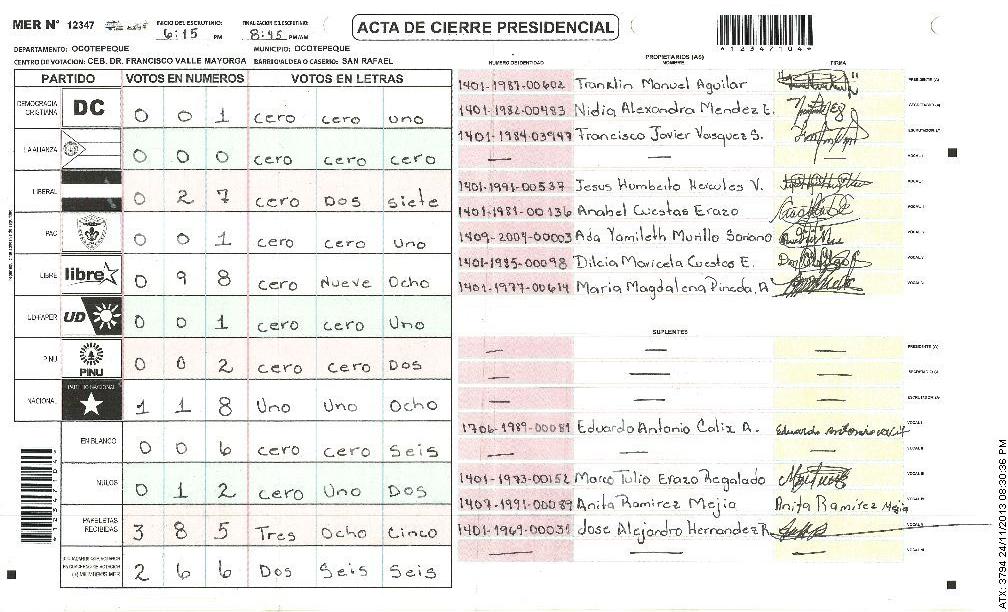 MER Nº 12347 INICIO DEL ESCRUTINIO: 6:15 PM FINALIZACION ESCRUTINIO: 8:45 PM/AM
ACTA DE CIERRE PRESIDENCIAL
*12347104*
DEPARTAMENTO: OCOTEPEQUE MUNICIPIO: OCOTEPEQUE
CENTRO DE VOTACION: CEB. DR. FRANCISCO VALLE MAYORGA BARRIO/ALDEA O CASERIO: SAN RAFAEL
PARTIDO VOTOS EN NUMEROS VOTOS EN LETRAS
DEMOCRACIA CRISTIANA DC 0 0 1 cero cero uno
LA ALIANZA 0 0 0 cero cero cero
LIBERAL 0 2 7 cero Dos siete
PAC 0 0 1 cero cero Uno
LIBRE libre 0 9 8 cero Nueve Ocho
UD-FAPER UD 0 0 1 cero cero Uno
PINU PINU 0 0 2 cero cero Dos
NACIONAL PARTIDO NACIONAL 1 1 8 Uno Uno Ocho
EN BLANCO 0 0 6 cero cero Seis
NULOS 0 1 2 cero Uno Dos
PAPELETAS RECIBIDAS 3 8 5 Tres Ocho Cinco
2 6 6 Dos Seis Seis
PROPIETARIOS (AS)
NUMERO DE IDENTIDAD NOMBRE FIRMA
1401-1987-00602 Franklin Manuel Aguilar PRESIDENTE (A)
1401-1982-00483 Nidia Alexandra Mendez E. SECRETARIO (A)
1401-1984-03947 Francisco Javier Vasquez S. ESCRUTADOR (A)
— — VOCAL I
1401-1991-00537 Jesus Humberto Hercules V.
1401-1981-00136 Anabel Cuestas Erazo
1409-2009-00003 Ada Yamileth Murillo Soriano
1401-1985-00098 Dilcia Maricela Cuestas E.
1401-1977-00614 Maria Magdalena Pineda A
SUPLENTES
— — — PRESIDENTE (A)
— — — SECRETARIO (A)
— — — ESCRUTADOR (A)
1706-1989-00081 Eduardo Antonio Calix A. Eduardo Antonio VOCAL I
— — — VOCAL II
1401-1973-00152 Marco Tulio Erazo Regalado VOCAL III
1407-1991-00089 Anita Ramirez Mejia Anita Ramirez Mejia
1401-1969-00031 Jose Alejandro Hernandez R.
— — —
*12347104*
ATX: 3794 24/11/2013 08:30:36 PM